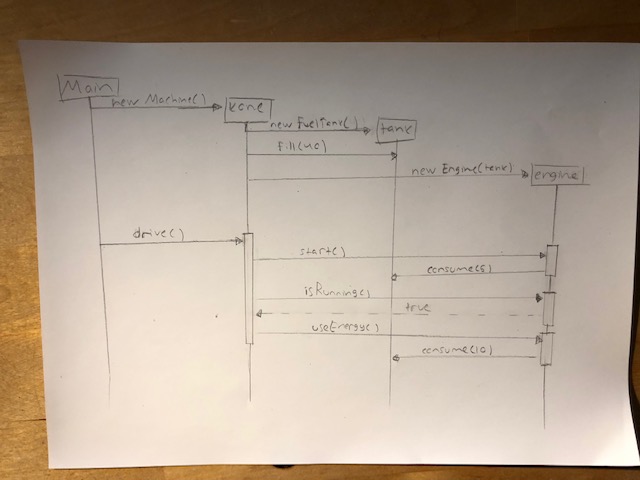 Main
new Machine()
kone
new FuelTank()
tank
fill(40)
new Engine(tank)
engine
drive()
start()
consume(5)
isRunning()
true
useEnergy()
consume(10)